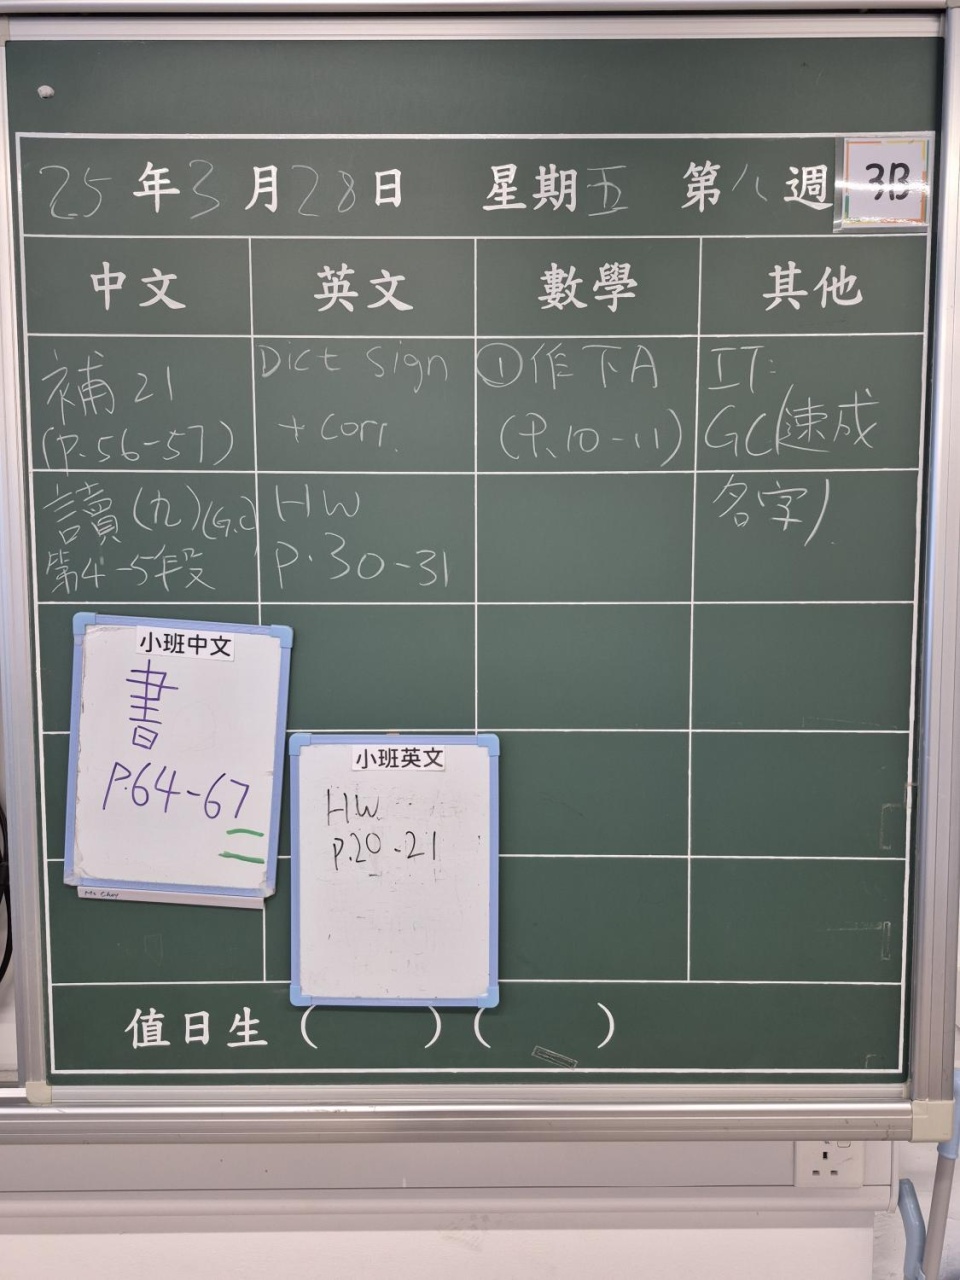 25年3月28日 星期五 第八週 3B
中文 英文 數學 其他
補21
(P.56-57)
Dict Sign
+ Corr.
①作下A
(P.10-11)
IT:
GC(速成
名字)
讀(九)(G.C)
第4-5段
HW
P.30-31
小班中文
書
P.64-67
小班英文
HW
P.20-21
值日生( )( )